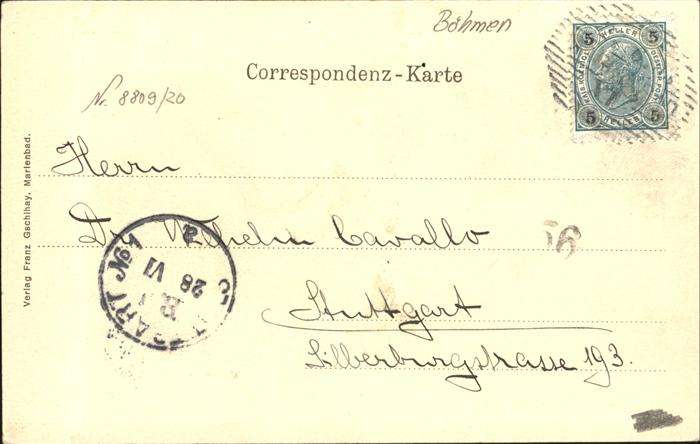 Böhmen
5 HELLER 5
5 HELLER 5
Correspondenz-Karte
Nr. 8809/20
Herrn
Dr. Wilhelm Cavallo
56
Stuttgart
Silberburgstrasse 193.
No 1
28 VI
Verlag Franz Gschihay, Marienbad.